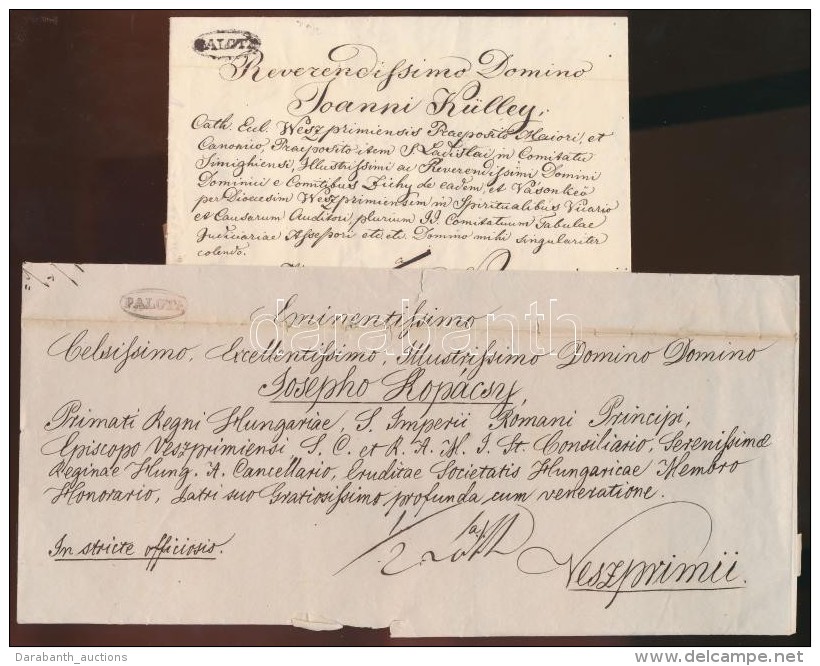 PALOTA
Reverendissimo Domino
Joanni Külley,
Cath. Eccl. Weszprimiensis Praeposito Maiori, et
Canonico, Praeposito item S. Ladislai, in Comitatu
Simighiensi, Illustrissimi ac Reverendissimi Domini
Dominici e Comitibus Zichy de eadem et Vásonkeő
per Dioecesim Weszprimiensem in Spiritualibus Vicario
et Causarum Auditori, plurium II. Comitatuum Tabulae
Judiciariae Assessori etc. etc. Domino mihi singulariter
colendo.
PALOTA
Eminentissimo
Celsissimo, Excellentissimo, Illustrissimo Domino Domino
Josepho Kopácsy,
Primati Regni Hungariae, S. Imperii Romani Principi,
Episcopo Veszprimiensi, S. C. et R. A. M. I. St. Consiliario, Serenissimæ
Reginae Hung. A. Cancellario, Eruditae Societatis Hungaricae Membro
Honorario, Patri suo Gratiosissimo profunda cum veneratione.
In stricte officiosis.
Veszprimii.
darabanth
Darabanth_auctions
www.delcampe.net